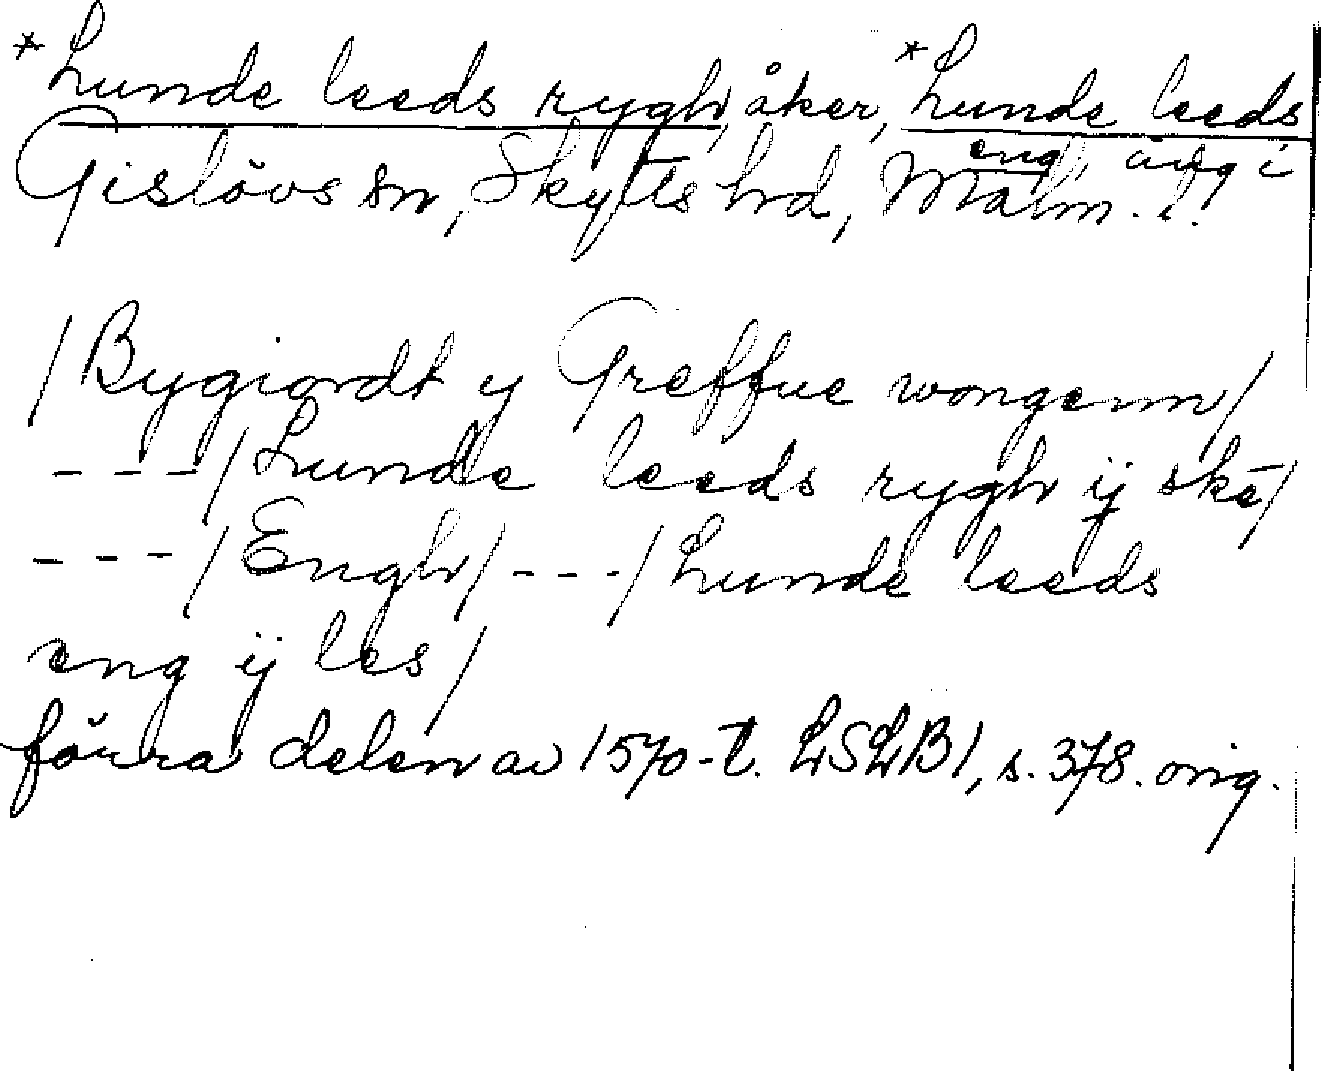 *Lunde leeds rygh, åker, *Lunde leeds
eng, äng i
Gislövs sn, Skytts hd, Malm. l.
/Bygiordt y Greffue wongenn/
---/Lunde leeds rygh ij skē/
---/Engh/---/Lunde leeds
eng ij les/
förra delen av 1570-t. LSLB1, s. 378. orig.